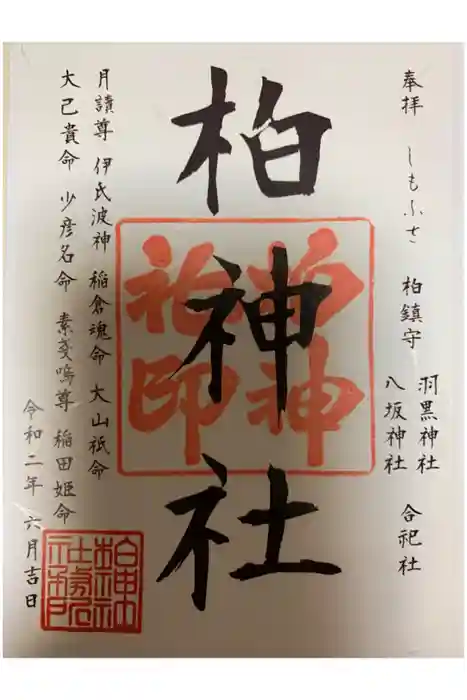 奉拝 しもふさ 柏鎮守
羽黒神社
八坂神社
合祀社
柏神社
柏神
社印
月讀尊 伊氐波神 稲倉魂命 大山祇命
大己貴命 少彦名命 素戔嗚尊 稲田姫命
令和二年 六月吉日
柏神社
社務所